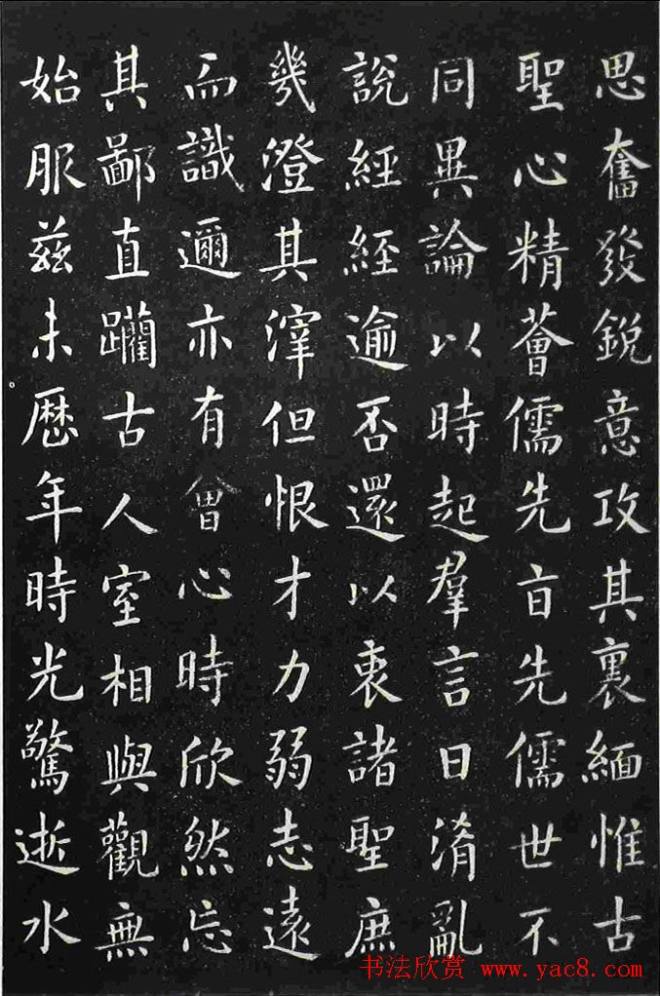 思奮發銳意攻其裏緬惟古
聖心精薈儒先盲先儒世不
同異論以時起羣言日淆亂
說經經逾否還以衷諸聖庶
幾澄其滓但恨才力弱志遠
而識邇亦有會心時欣然忘
其鄙直躙古人室相與觀無
始服茲未歷年時光驚逝水
书法欣赏 www.yac8.com